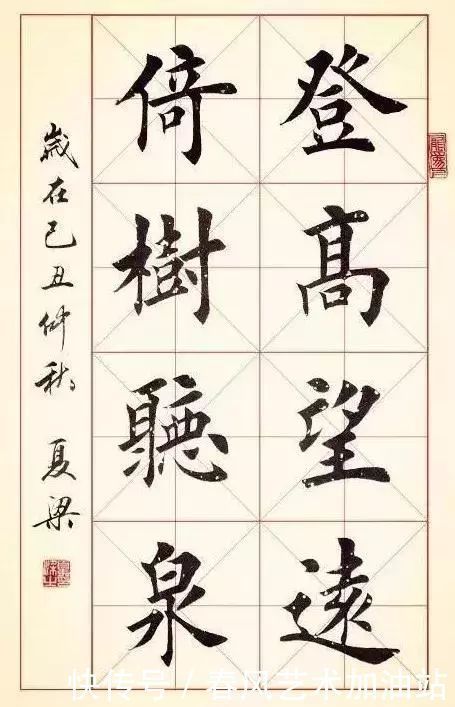 登高望遠
倚樹聽泉
歲在己丑仲秋 夏梁
快传号 / 春风艺术加油站